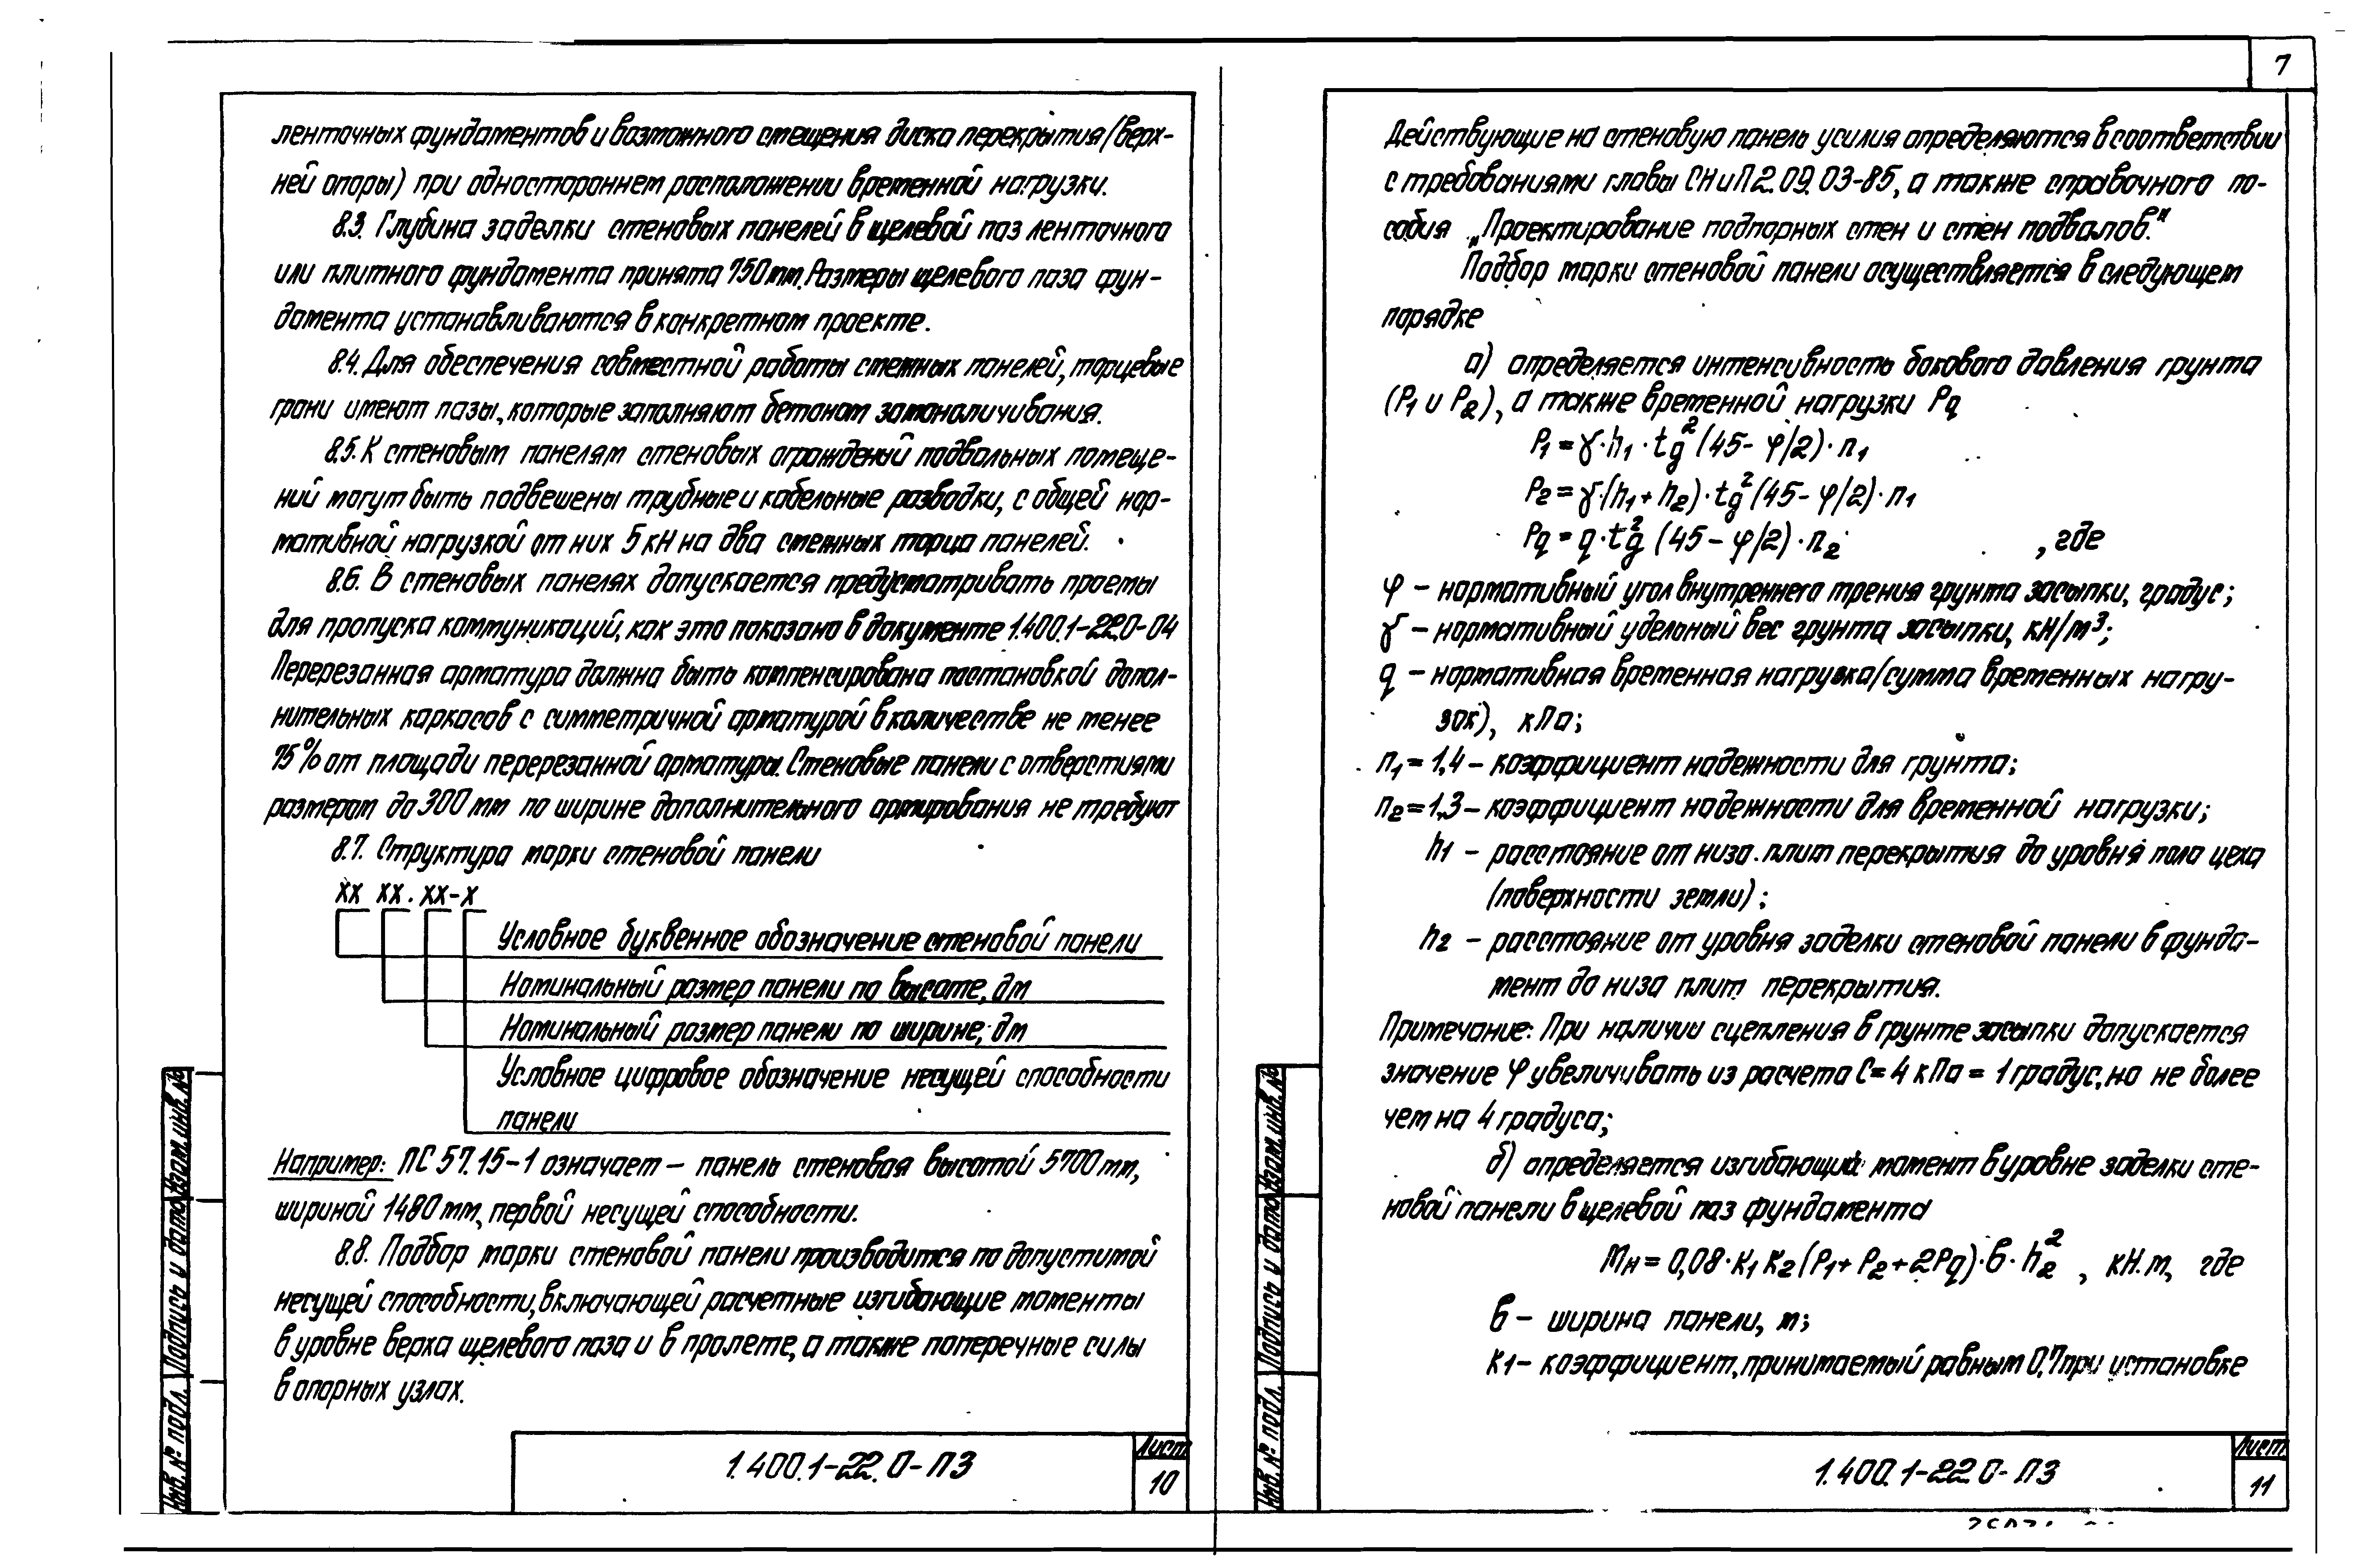 7
ленточных фундаментов и возможного смещения диска перекрытия (верх-
ней опоры) при одностороннем расположении временной нагрузки.
8.3. Глубина заделки стеновых панелей в щелевой паз ленточного
или плитного фундамента принята 750мм. Размеры щелевого паза фун-
дамента устанавливаются в конкретном проекте.
8.4. Для обеспечения совместной работы смежных панелей, торцевые
грани имеют пазы, которые заполняют бетоном замоноличивания.
8.5. К стеновым панелям стеновых ограждений подвальных помеще-
ний могут быть подвешены трубные и кабельные разводки, с общей нор-
мативной нагрузкой от них 5 кН на два смежных торца панелей.
8.6. В стеновых панелях допускается предусматривать проемы
для пропуска коммуникаций, как это показано в документе 1.400.1-22.0-04
Перерезанная арматура должна быть компенсирована постановкой допол-
нительных каркасов с симметричной арматурой в количестве не менее
75% от площади перерезанной арматуры. Стеновые панели с отверстиями
размером до 300 мм по ширине дополнительного армирования не требуют
8.7. Структура марки стеновой панели
ХХ ХХ . ХХ-Х
Условное буквенное обозначение стеновой панели
Номинальный размер панели по высоте, дм
Номинальный размер панели по ширине, дм
Условное цифровое обозначение несущей способности
панели
Например: ПС 57.15-1 означает – панель стеновая высотой 5700 мм,
шириной 1480 мм, первой несущей способности.
8.8. Подбор марки стеновой панели производится по допустимой
несущей способности, включающей расчетные изгибающие моменты
в уровне верха щелевого паза и в пролете, а также поперечные силы
в опорных узлах.
1.400.1-22.0-ПЗ
Лист
10
Инв. № подл. Подпись и дата Взам. инв. №
Действующие на стеновую панель усилия определяются в соответствии
с требованиями главы СНиП 2.09.03-85, а также справочного по-
собия „Проектирование подпорных стен и стен подвалов."
Подбор марки стеновой панели осуществляется в следующем
порядке
а) определяется интенсивность бокового давления грунта
(P₁ и P₂), а также временной нагрузки Pq
P₁ = γ·h₁·tg²(45-φ/2)·n₁
P₂ = γ·(h₁+h₂)·tg²(45-φ/2)·n₁
Pq = q·tg²(45-φ/2)·n₂ , где
φ – нормативный угол внутреннего трения грунта засыпки, градус;
γ – нормативный удельный вес грунта засыпки, кН/м³;
q – нормативная временная нагрузка (сумма временных нагру-
зок), кПа;
n₁ = 1,4 – коэффициент надежности для грунта;
n₂ = 1,3 – коэффициент надежности для временной нагрузки;
h₁ – расстояние от низа плит перекрытия до уровня пола цеха
(поверхности земли);
h₂ – расстояние от уровня заделки стеновой панели в фунда-
мент до низа плит перекрытия.
Примечание: При наличии сцепления в грунте засыпки допускается
значение φ увеличивать из расчета С = 4 кПа = 1 градус, но не более
чем на 4 градуса;
б) определяется изгибающий момент в уровне заделки сте-
новой панели в щелевой паз фундамента
Мн = 0,08·к₁ к₂ (P₁ + P₂ + 2Pq)·в·h₂² , кН.м, где
в – ширина панели, м;
к₁ – коэффициент, принимаемый равным 0,7 при установке
1.400.1-22.0-ПЗ
Лист
11
Инв. № подл. Подпись и дата Взам. инв. №